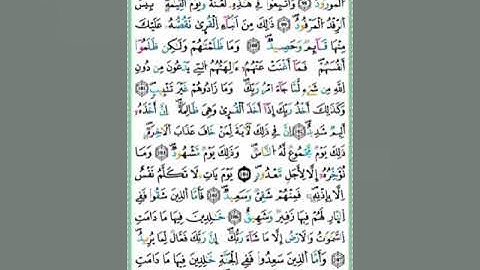 الْمَوْرُودُ وَأُتْبِعُوا فِي هَٰذِهِ لَعْنَةً وَيَوْمَ الْقِيَٰمَةِ بِئْسَ
الرِّفْدُ الْمَرْفُودُ ذَٰلِكَ مِنْ أَنۢبَآءِ الْقُرَىٰ نَقُصُّهُ عَلَيْكَ
مِنْهَا قَآئِمٌ وَحَصِيدٌ وَمَا ظَلَمْنَٰهُمْ وَلَٰكِن ظَلَمُوا
أَنفُسَهُمْ فَمَآ أَغْنَتْ عَنْهُمُۥ ءَالِهَتُهُمُ الَّتِي يَدْعُونَ مِن دُونِ
اللَّهِ مِن شَيْءٍ لَّمَّا جَآءَ امْرُ رَبِّكَ وَمَا زَادُوهُمْ غَيْرَ تَتْبِيبٍ
وَكَذَٰلِكَ أَخْذُ رَبِّكَ إِذَآ أَخَذَ الْقُرَىٰ وَهِيَ ظَٰلِمَةٌ إِنَّ أَخْذَهُۥٓ
أَلِيمٌ شَدِيدٌ إِنَّ فِي ذَٰلِكَ لَءَايَةً لِّمَنْ خَافَ عَذَابَ الْءَاخِرَةِ
ذَٰلِكَ يَوْمٌ مَّجْمُوعٌ لَّهُ النَّاسُ وَذَٰلِكَ يَوْمٌ مَّشْهُودٌ وَمَا
نُؤَخِّرُهُۥٓ إِلَّا لِأَجَلٍ مَّعْدُودٍ يَوْمَ يَأْتِ لَا تَكَلَّمُ نَفْسٌ
إِلَّا بِإِذْنِهِۦ فَمِنْهُمْ شَقِيٌّ وَسَعِيدٌ فَأَمَّا الَّذِينَ شَقُوا فَفِي
النَّارِ لَهُمْ فِيهَا زَفِيرٌ وَشَهِيقٌ خَٰلِدِينَ فِيهَا مَا دَامَتِ
السَّمَٰوَٰتُ وَالْأَرْضُ إِلَّا مَا شَآءَ رَبُّكَ إِنَّ رَبَّكَ فَعَّالٌ لِّمَا يُرِيدُ
وَأَمَّا الَّذِينَ سَعِدُوا فَفِي الْجَنَّةِ خَٰلِدِينَ فِيهَا مَا دَامَتِ